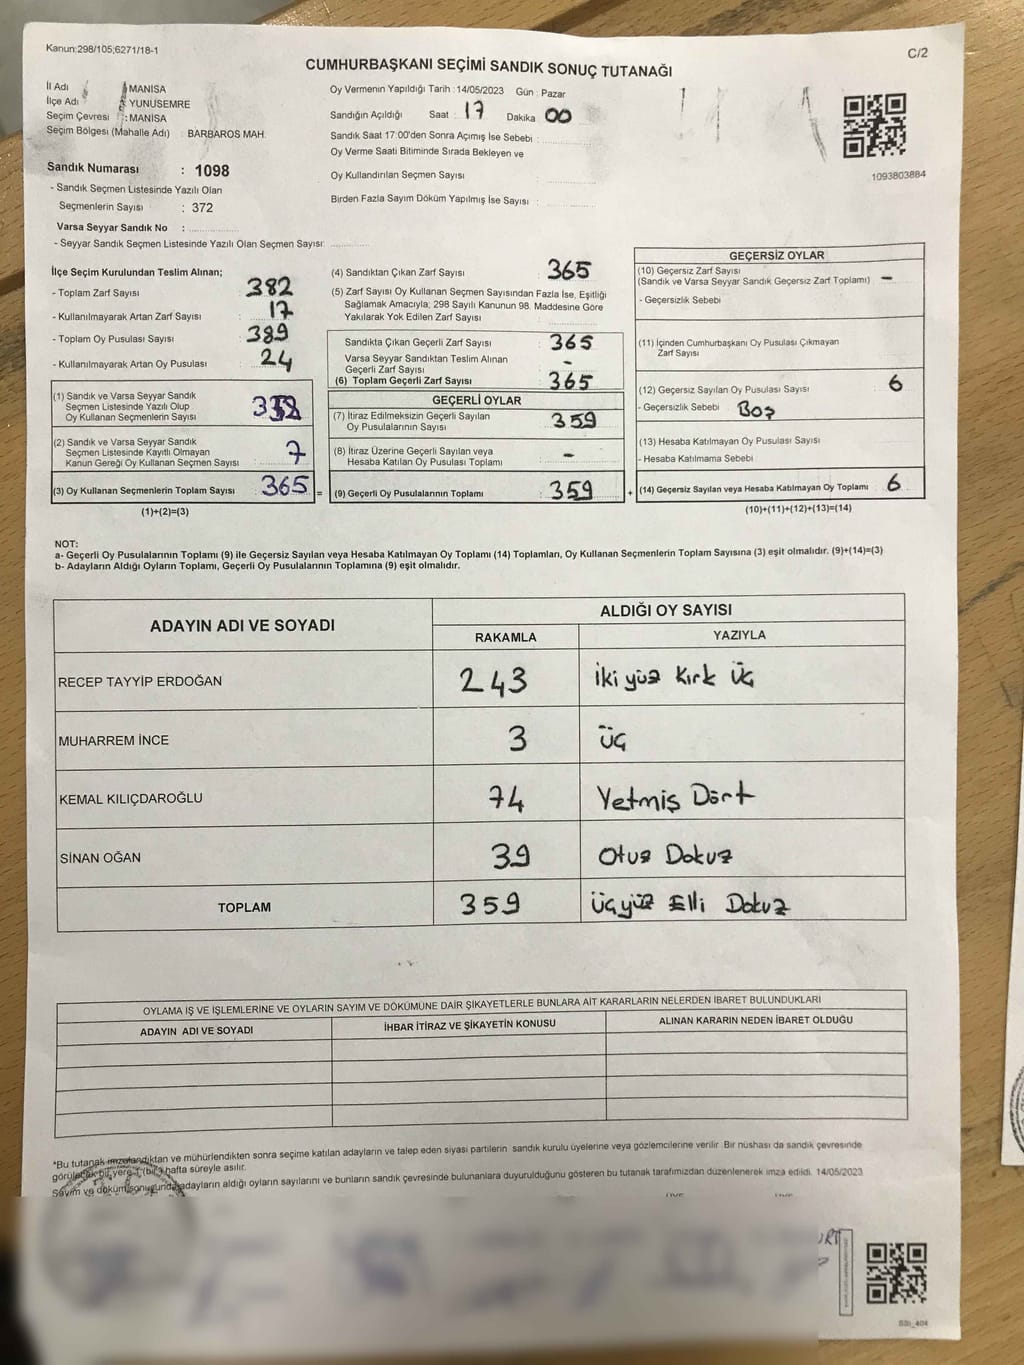 Kanun:298/105;6271/18-1
C/2
CUMHURBAŞKANI SEÇİMİ SANDIK SONUÇ TUTANAĞI
İl Adı : MANISA
İlçe Adı : YUNUSEMRE
Seçim Çevresi : MANISA
Seçim Bölgesi (Mahalle Adı) : BARBAROS MAH.
Sandık Numarası : 1098
- Sandık Seçmen Listesinde Yazılı Olan
Seçmenlerin Sayısı : 372
Varsa Seyyar Sandık No :
- Seyyar Sandık Seçmen Listesinde Yazılı Olan Seçmen Sayısı:
Oy Vermenin Yapıldığı Tarih : 14/05/2023 Gün : Pazar
Sandığın Açıldığı Saat 17 Dakika 00
Sandık Saat 17:00'den Sonra Açımış İse Sebebi :
Oy Verme Saati Bitiminde Sırada Bekleyen ve
Oy Kullandırılan Seçmen Sayısı
Birden Fazla Sayım Döküm Yapılmış İse Sayısı :
1093803884
İlçe Seçim Kurulundan Teslim Alınan;
- Toplam Zarf Sayısı : 382
- Kullanılmayarak Artan Zarf Sayısı : 17
- Toplam Oy Pusulası Sayısı : 389
- Kullanılmayarak Artan Oy Pusulası : 24
(1) Sandık ve Varsa Seyyar Sandık
Seçmen Listesinde Yazılı Olup
Oy Kullanan Seçmenlerin Sayısı : 358
(2) Sandık ve Varsa Seyyar Sandık
Seçmen Listesinde Kayıtlı Olmayan
Kanun Gereği Oy Kullanan Seçmen Sayısı : 7
(3) Oy Kullanan Seçmenlerin Toplam Sayısı : 365 =
(1)+(2)=(3)
(4) Sandıktan Çıkan Zarf Sayısı : 365
(5) Zarf Sayısı Oy Kullanan Seçmen Sayısından Fazla İse, Eşitliği
Sağlamak Amacıyla; 298 Sayılı Kanunun 98. Maddesine Göre
Yakılarak Yok Edilen Zarf Sayısı :
Sandıkta Çıkan Geçerli Zarf Sayısı : 365
Varsa Seyyar Sandıktan Teslim Alınan
Geçerli Zarf Sayısı : -
(6) Toplam Geçerli Zarf Sayısı : 365
GEÇERLİ OYLAR
(7) İtiraz Edilmeksizin Geçerli Sayılan
Oy Pusulalarının Sayısı : 359
(8) İtiraz Üzerine Geçerli Sayılan veya
Hesaba Katılan Oy Pusulası Toplamı : -
(9) Geçerli Oy Pusulalarının Toplamı : 359 +
GEÇERSİZ OYLAR
(10) Geçersiz Zarf Sayısı
(Sandık ve Varsa Seyyar Sandık Geçersiz Zarf Toplamı) : -
- Geçersizlik Sebebi
(11) İçinden Cumhurbaşkanı Oy Pusulası Çıkmayan
Zarf Sayısı
(12) Geçersiz Sayılan Oy Pusulası Sayısı : 6
- Geçersizlik Sebebi Boş
(13) Hesaba Katılmayan Oy Pusulası Sayısı
- Hesaba Katılmama Sebebi
(14) Geçersiz Sayılan veya Hesaba Katılmayan Oy Toplamı : 6
(10)+(11)+(12)+(13)=(14)
NOT:
a- Geçerli Oy Pusulalarının Toplamı (9) ile Geçersiz Sayılan veya Hesaba Katılmayan Oy Toplamı (14) Toplamları, Oy Kullanan Seçmenlerin Toplam Sayısına (3) eşit olmalıdır. (9)+(14)=(3)
b- Adayların Aldığı Oyların Toplamı, Geçerli Oy Pusulalarının Toplamına (9) eşit olmalıdır.
ADAYIN ADI VE SOYADI ALDIĞI OY SAYISI
RAKAMLA YAZIYLA
RECEP TAYYİP ERDOĞAN 243 İki yüz Kırk Üç
MUHARREM İNCE 3 Üç
KEMAL KILIÇDAROĞLU 74 Yetmiş Dört
SİNAN OĞAN 39 Otuz Dokuz
TOPLAM 359 Üçyüz Elli Dokuz
OYLAMA İŞ VE İŞLEMLERINE VE OYLARIN SAYIM VE DÖKÜMÜNE DAİR ŞİKAYETLERLE BUNLARA AİT KARARLARIN NELERDEN İBARET BULUNDUKLARI
ADAYIN ADI VE SOYADI İHBAR İTİRAZ VE ŞİKAYETİN KONUSU ALINAN KARARIN NEDEN İBARET OLDUĞU
*Bu tutanak imzalandıktan ve mühürlendikten sonra seçime katılan adayların ve talep eden siyasi partilerin sandık kurulu üyelerine veya gözlemcilerine verilir. Bir nüshası da sandık çevresinde
görülebilecek bir yere 1 (bir) hafta süreyle asılır.
Sayım ve döküm sonucunda adayların aldığı oyların sayılarını ve bunların sandık çevresinde bulunanlara duyurulduğunu gösteren bu tutanak tarafımızdan düzenlenerek imza edildi. 14/05/2023